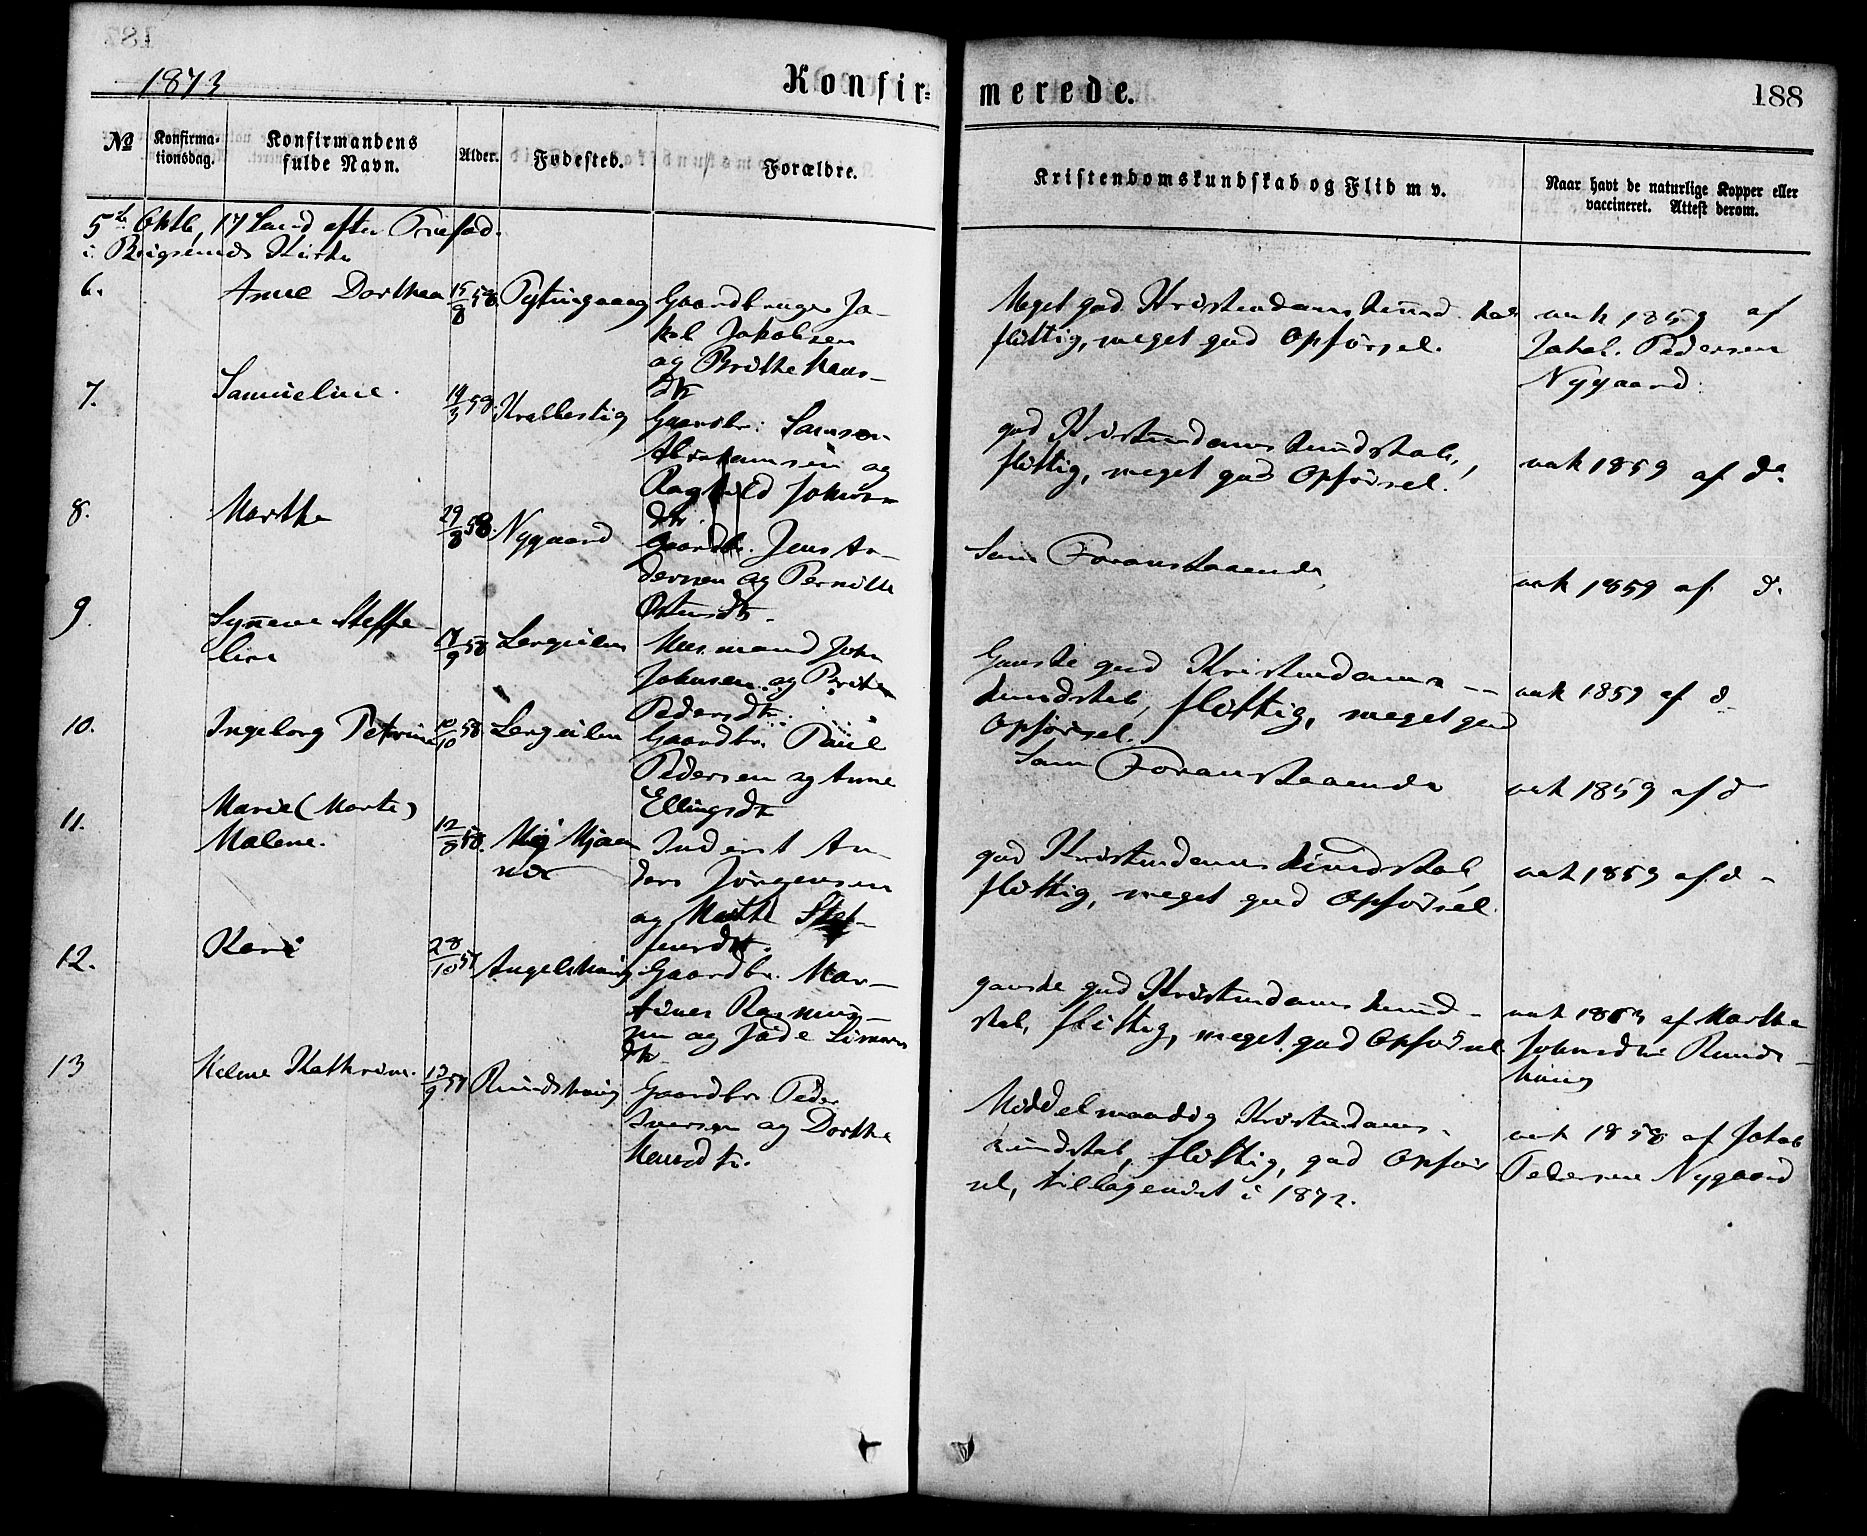 1873
Konfir=
merede.
188
No
Konfirma-
tionsdag.
Konfirmandens
fulde Navn.
Alder.
Fødested.
Forældre.
Kristendomskundskab og Flid m v.
Naar havt de naturlige Kopper eller
vaccineret. Attest derom.
5te Oktb, 17 Sønd efter Trefold.
i Kirke
6.
Anne Dorthea
15/8 58
Gaardbruger Ja-
kob Jakobsen
og Brithe Hans-
dtr
Meget god Kristendomskundskab
flittig, meget god Opførsel.
vak 1859 af
Jakob Pedersen
Nygaard
7.
Samueline.
19/3 58.
Gaardbr: Samson
Abrahamsen og
Ragnild Johns
dtr.
god Kristendomskundskab,
flittig, meget god Opførsel.
vak 1859 af do.
8.
Marthe
29/8 58.
Nygaard
Gaardbr. Jens An-
dersen og Pernille
Ostensdtr.
Som Foranstaaende,
vak 1859 af d.
9.
Synneve Steffe-
line
17/9 58
Husmand John
Johnsen og Brithe
Pedersdtr.
Ganske god Kristendoms-
kundskab, flittig, meget god
Opførsel.
vak 1859 af d
10.
Ingeborg Petrine
10/10 58
Gaardbr. Paul
Pedersen og Anne
Ellingsdtr
Som Foranstaaende
vak 1859 af d
11.
Marie (Marte)
Malene.
12/8 58.
Inderst An-
ders Jørgensen
og Marthe Stef-
fensdtr.
god Kristendomskundskab,
flittig, meget god Opførsel.
vak 1859 af d
12.
Kari
28/10 57
Gaardbr. Mar-
tines Rasmus-
sen og Simons
dtr
ganske god Kristendomskund-
skab, flittig, meget god Opførsel
af Marthe
Johnsdtr Runds-
haug
13
Helene Kathrine.
13/9 57
Rundshaug
Gaardbr Peder
Iversen og Dorthe
Hansdtr.
Middelmaadig Kristendoms-
kundskab, flittig, god Opfør-
sel, i 1872.
vak 1858 af Jakob
Pedersen Nygaard